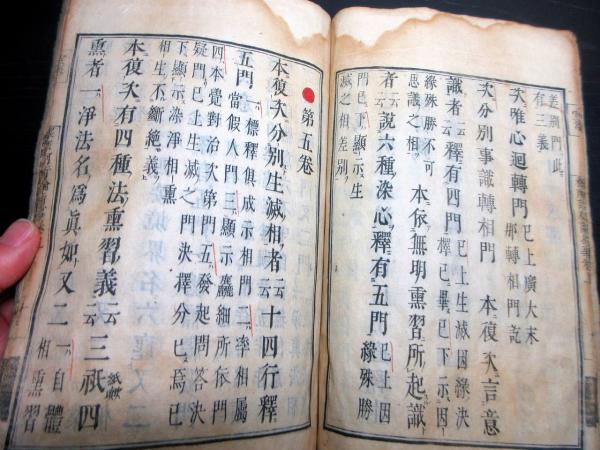 差別門此
有三義
次唯心迴轉門 已上廣大末
那轉相門訖
次分別事識轉相門 本復次言意
識者云云釋有四門 已上生滅因緣決
擇已畢已下示因
緣殊勝不可
思議之相 本依無明熏習所起識
者云云說六種染心釋有五門 已上因
緣殊勝
門已下顯示生
滅之相差別
●第五卷
本復次分別生滅相者云云十四行釋
五門 一標釋俱成示相門二率相屬
當假人門三顯示麤細所依門
四本覺對治次第門五發起問答決
疑門已上生滅之門決擇分已焉已
下顯示染淨相熏
相生不斷絕義
本復次有四種法熏習義云云三祇四
紙歟
熏者一淨法名爲眞如又二 一自體
相熏習